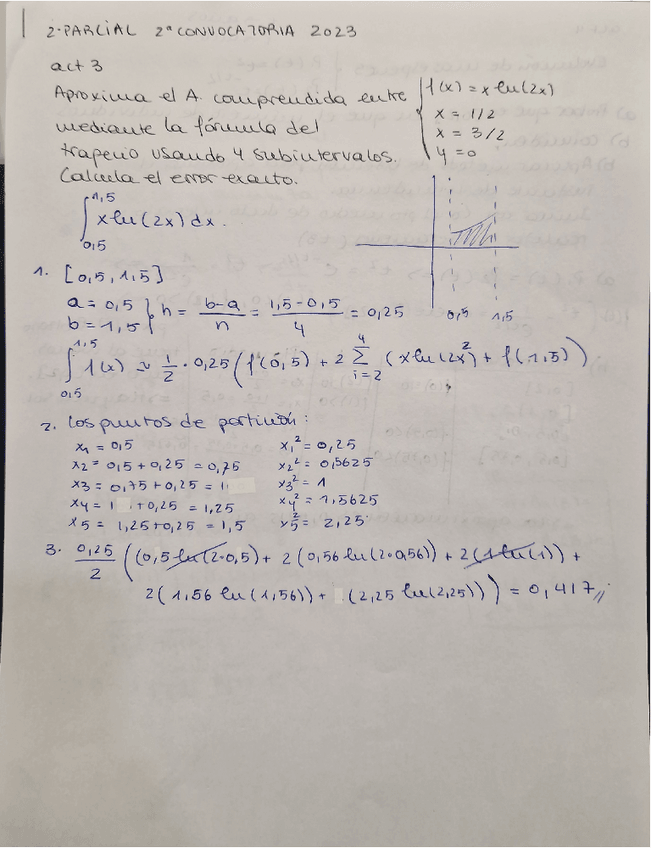 2-PARCIAL 2ª CONVOCATORIA 2023
act 3
Aproxima el A. comprendida entre
mediante la fórmula del
trapecio usando 4 subintervalos.
Calcula el error exacto.
f(x) = x ln(2x)
x = 1/2
x = 3/2
y = 0
∫ 0,5 1,5 x ln(2x) dx.
0,5 1,5
1. [0,5, 1,5]
a = 0,5
b = 1,5 } h = (b-a)/n = (1,5-0,5)/4 = 0,25
∫ 0,5 1,5 f(x) ~ 1/2 · 0,25 (f(0,5) + 2 Σ i=2 4 (x ln(2x)² + f(1,5))
2. Los puntos de partición:
x1 = 0,5 x1² = 0,25
x2 = 0,5 + 0,25 = 0,75 x2² = 0,5625
x3 = 0,75 + 0,25 = 1 x3² = 1
x4 = 1 + 0,25 = 1,25 x4² = 1,5625
x5 = 1,25 + 0,25 = 1,5 x5² = 2,25
3. 0,25/2 ((0,5 ln(2·0,5) + 2(0,56 ln(2·0,56)) + 2(1 ln(1)) +
2(1,56 ln(1,56)) + (2,25 ln(2,25))) = 0,417//